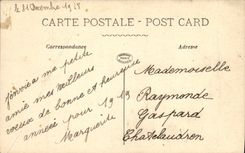 le 31 Décembre 1918
CARTE POSTALE - POST CARD
Correspondance
Adresse
J'envoie a ma petite
amie mes meilleurs
voeux de bonne et heureuse
année pour 1919
Marguerite
Mademoiselle
Raymonde
Gaspard
Chatelaudren